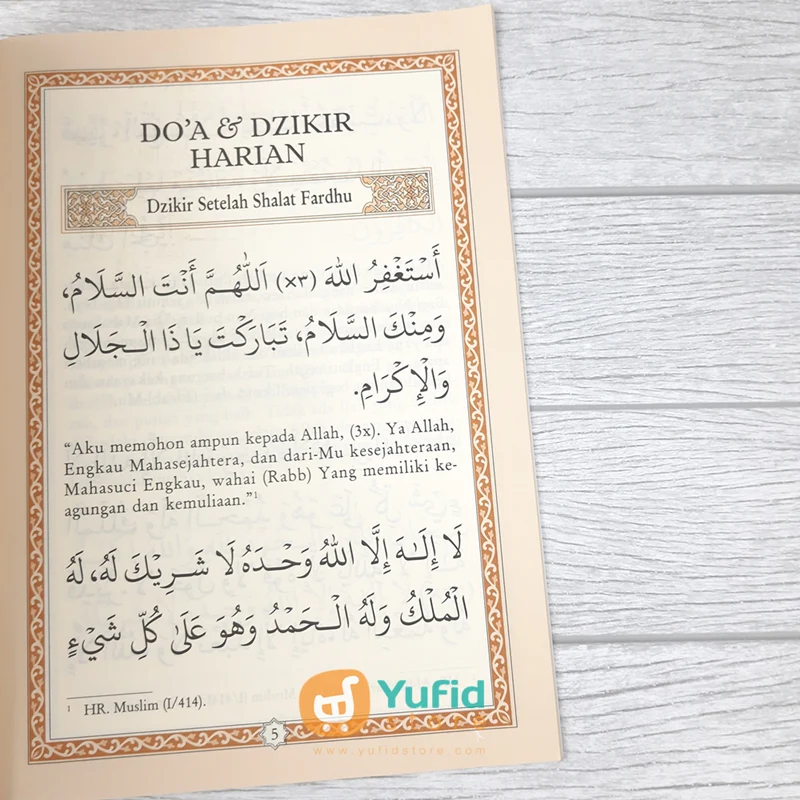 DO'A & DZIKIR
HARIAN
Dzikir Setelah Shalat Fardhu
أَسْتَغْفِرُ اللهَ (٣×) اَللّٰهُمَّ أَنْتَ السَّلَامُ،
وَمِنْكَ السَّلَامُ، تَبَارَكْتَ يَا ذَا الْجَلَالِ
وَالْإِكْرَامِ.
“Aku memohon ampun kepada Allah, (3x). Ya Allah,
Engkau Mahasejahtera, dan dari-Mu kesejahteraan,
Mahasuci Engkau, wahai (Rabb) Yang memiliki ke-
agungan dan kemuliaan.”¹
لَا إِلٰهَ إِلَّا اللهُ وَحْدَهُ لَا شَرِيْكَ لَهُ، لَهُ
الْمُلْكُ وَلَهُ الْحَمْدُ وَهُوَ عَلَىٰ كُلِّ شَيْءٍ
¹ HR. Muslim (I/414).
5
Yufid
www.yufidstore.com